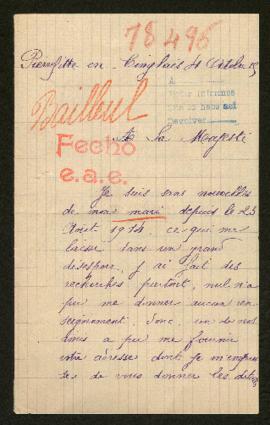 78496
Pierrefitte en Cinglais 4 Octobre 15
A
Bailleul
Devolver
A Sa Majesté
Fecho
e.a.e.
Je suis sans nouvelles
de mon mari depuis le 23
Août 1914, ce qui me
laisse dans un grand
désespoir, j'ai fait des
recherches partout, nul n'a
pu me donner aucun ren
seignement. Donc, un de nos
amis a pu me fournir
votre adresse dont je m'empres
se de vous donner les